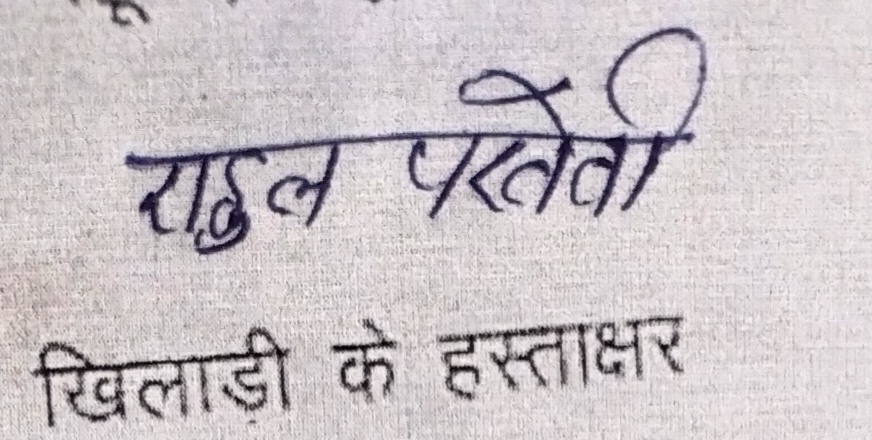 राहुल परतेती
खिलाड़ी के हस्ताक्षर